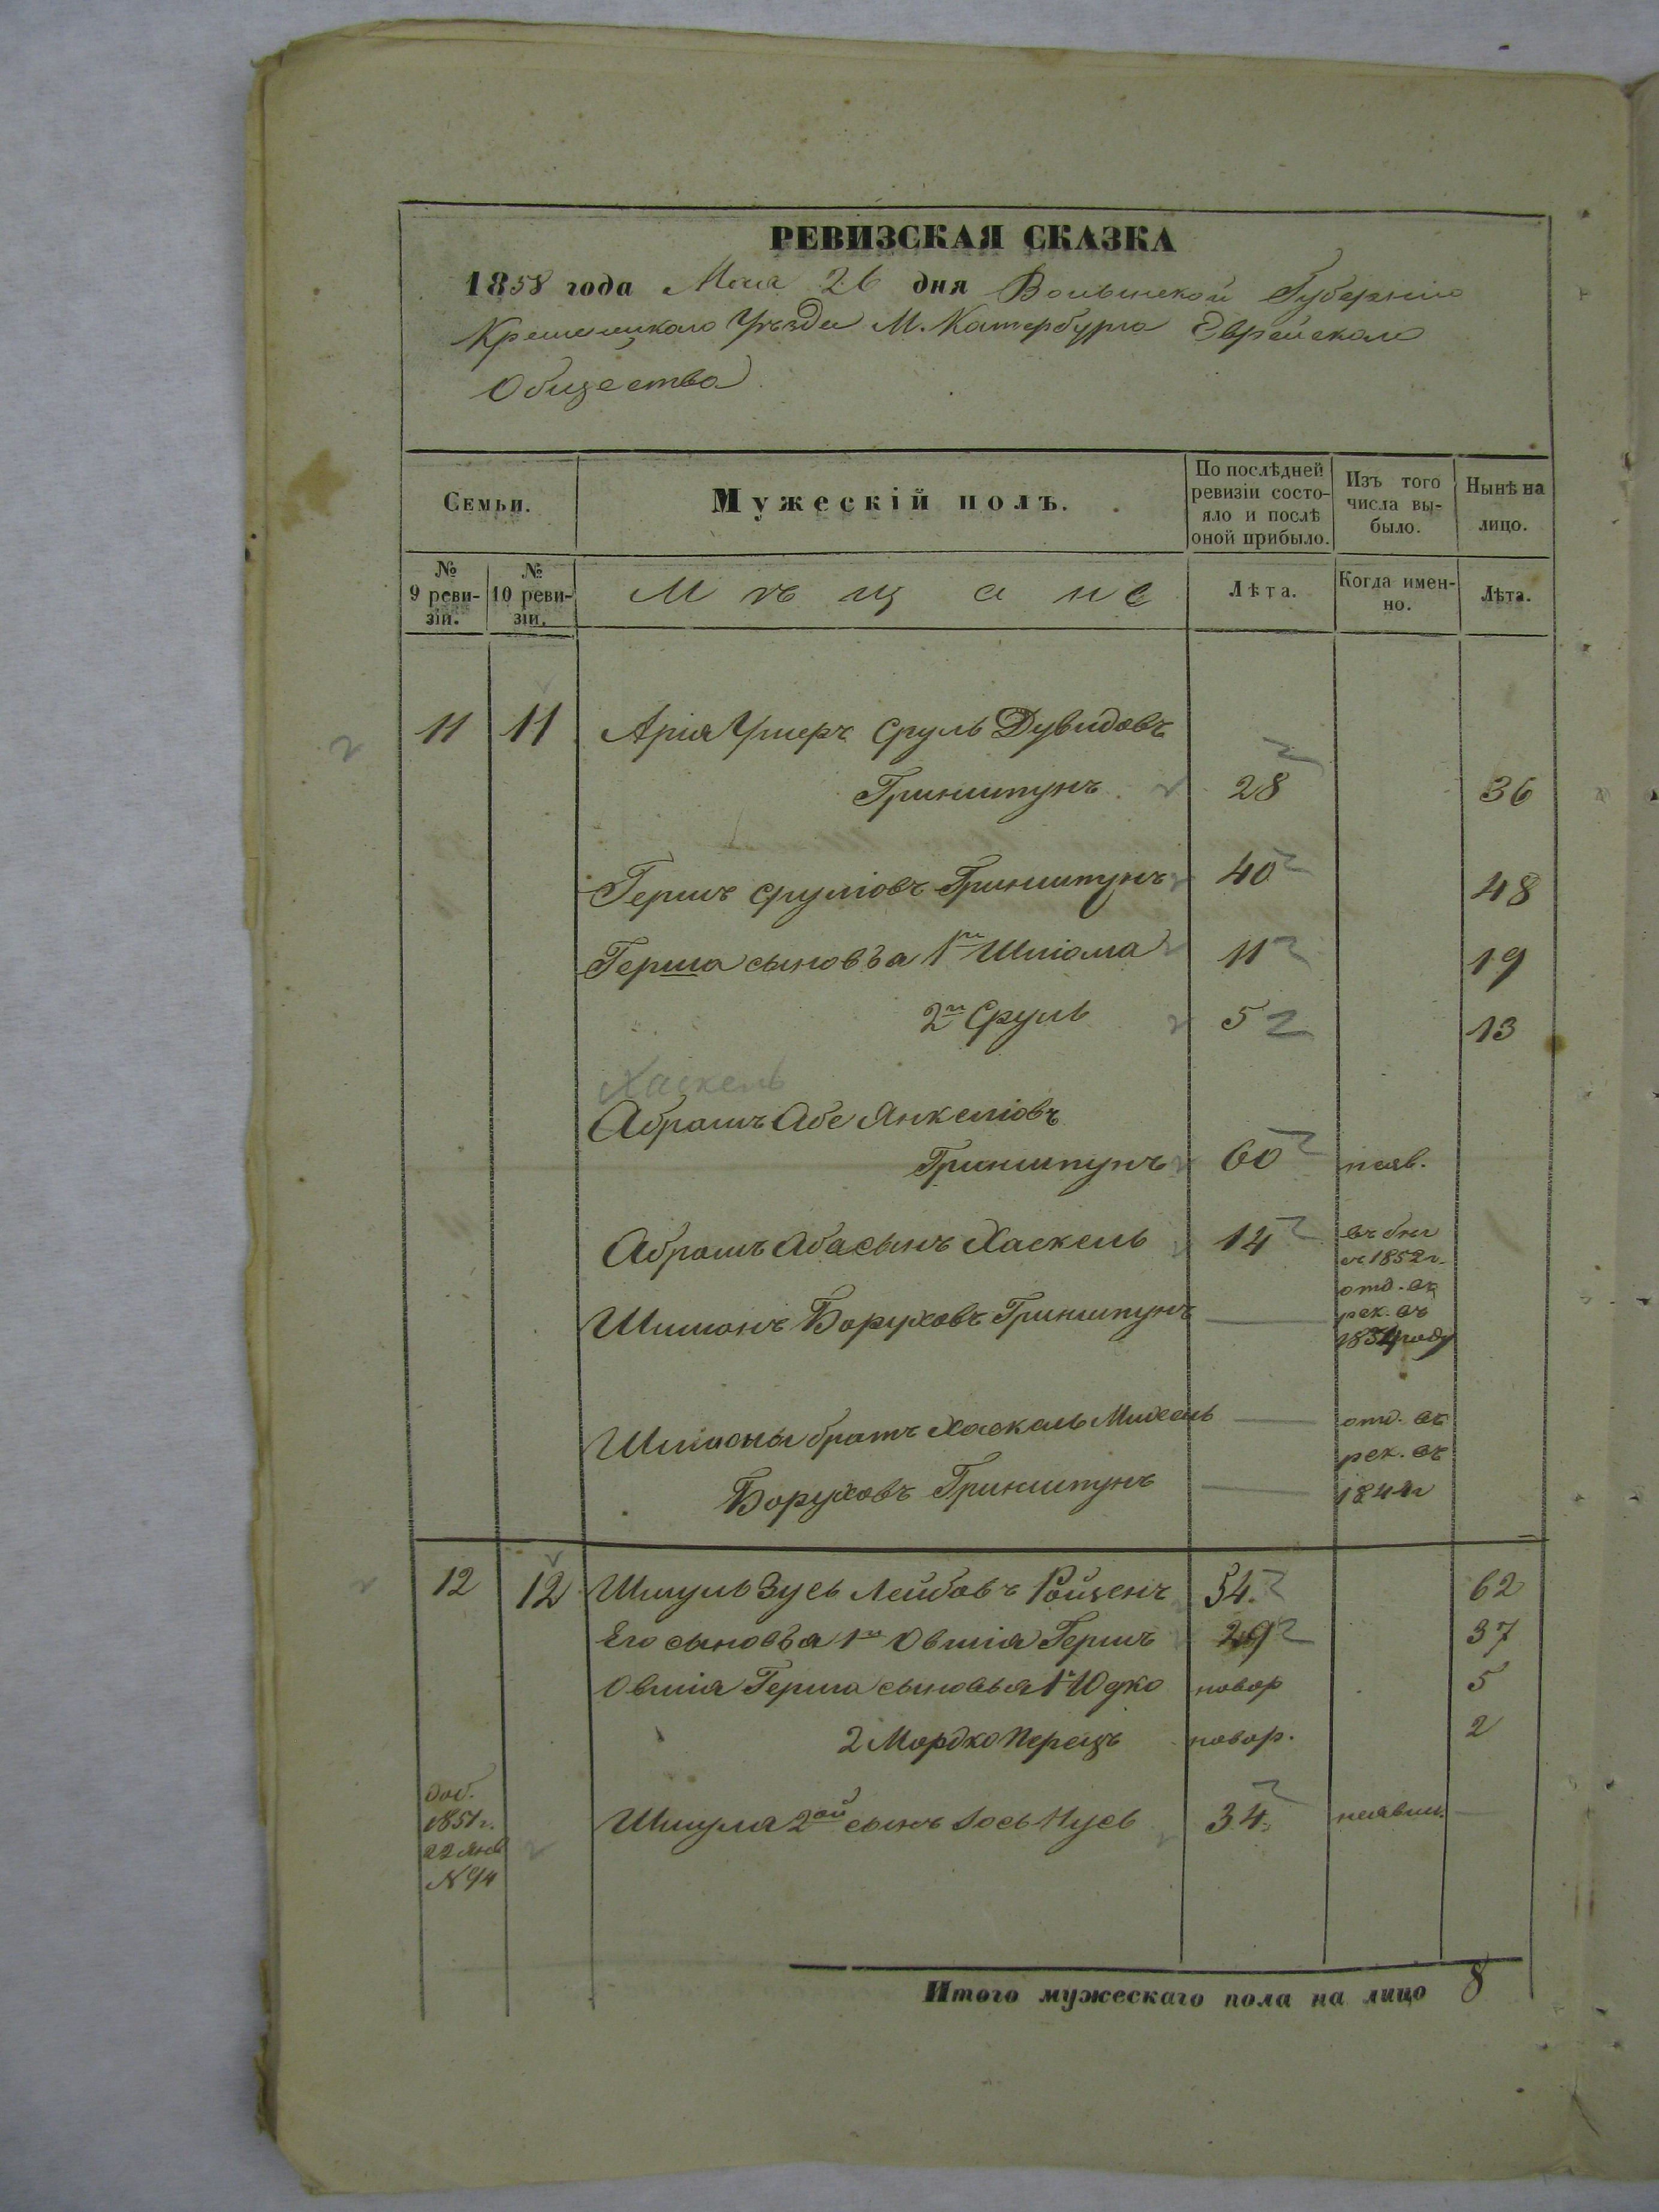 РЕВИЗСКАЯ СКАЗКА
1858 года Мая 26 дня Волынской Губернiи
Кременецкаго Уѣзда М. Катербурга Еврейскаго
Общества
Семьи. Мужескiй полъ. По послѣдней ревизiи состояло и послѣ оной прибыло. Изъ того числа выбыло. Нынѣ на лицо.
№ 9 ревизiи. № 10 ревизiи. Мѣщане Лѣта. Когда именно. Лѣта.
11 11 Арiя Ушеръ Сруль Дувидовъ
Гринштунъ 28 36
Гершъ Срулiовъ Гринштунъ 40 48
Герша сыновъя 1й Шлiома 11 19
2й Сруль 5 13
Хаскель
Абрамъ Абе Янкелiовъ
Гринштунъ 60 неяв.
Абрамъ Аба сынъ Хаскель 14 въ
1852г.
Шлiомъ Боруховъ Гринштунъ отд. въ
рек. въ
1854 году
братъ Хаскель Михель отд. въ
рек. въ
Боруховъ Гринштунъ 1844г
12 12 Шмуль Зусь Лейбовъ Ройзенъ 54. 62
Его сыновъя 1й Овшiя Гершъ 29 37
Овшiя Герша сыновья 1й Юдко новор 5
2 Мордко Перецъ новор. 2
Доб.
1851г. Шмуля 2ой сынъ Iось Нусь 34. неявил.
22 янв
N 94
Итого мужескаго пола на лицо 8